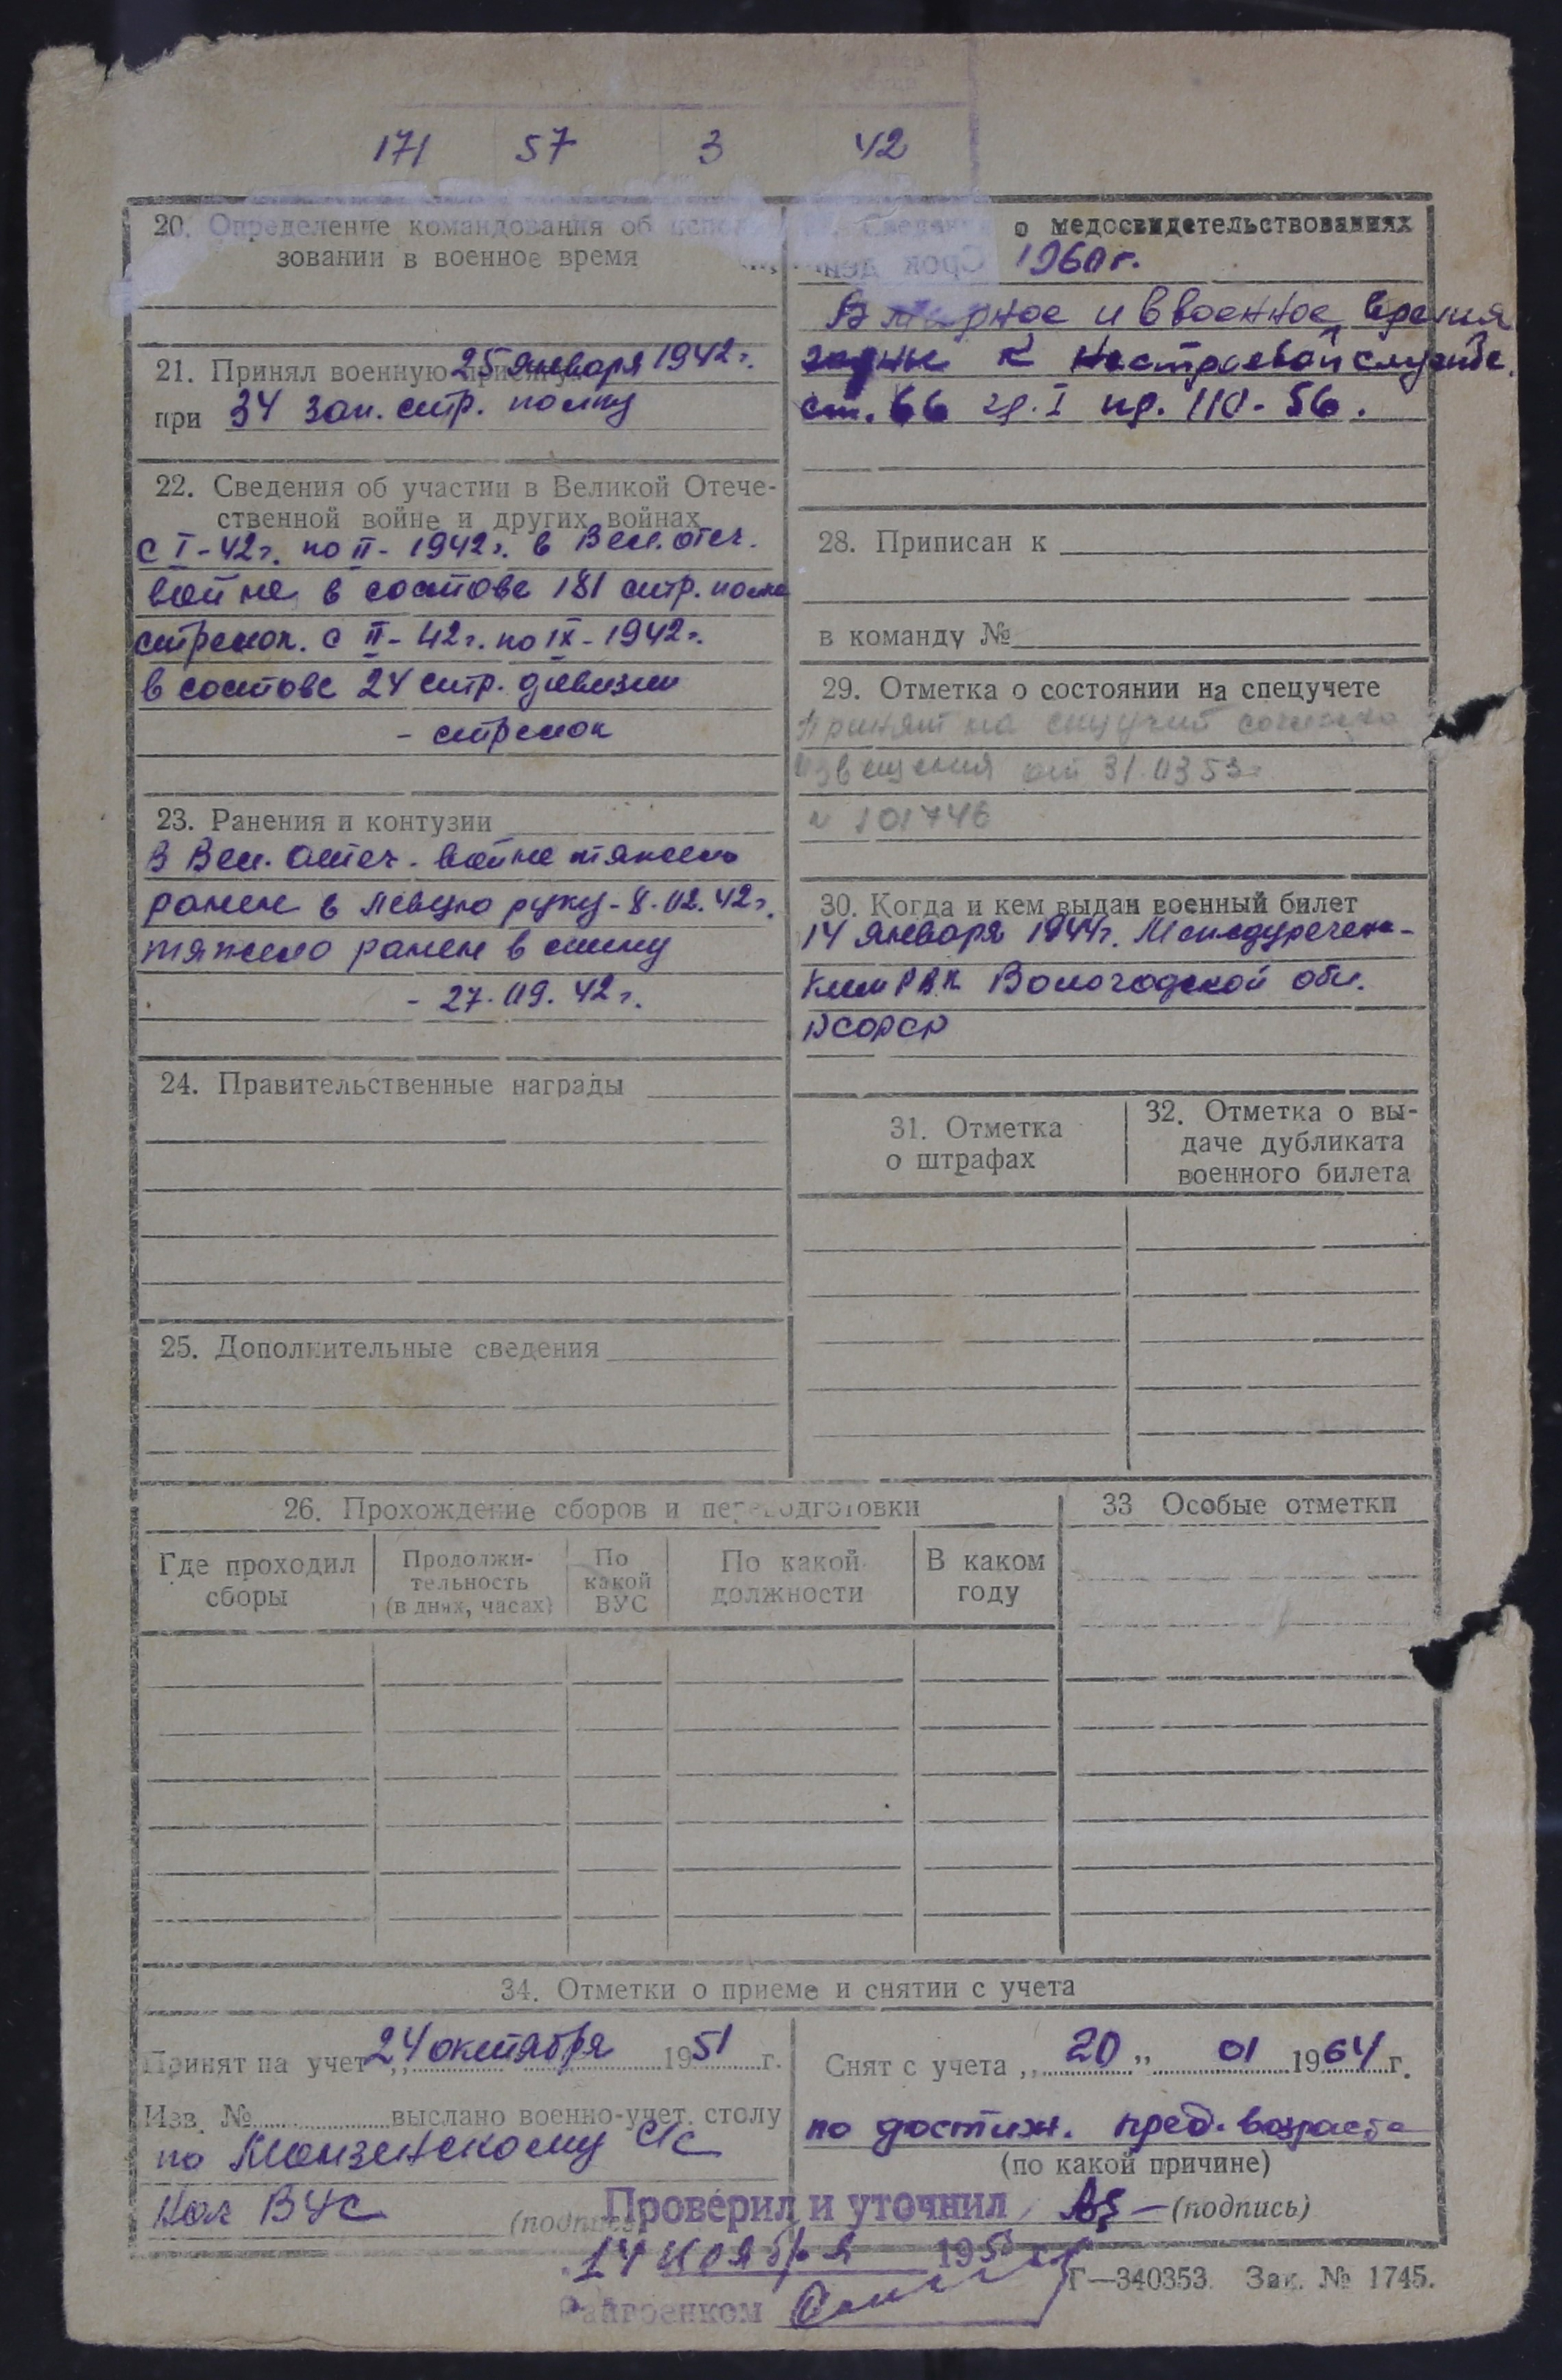 171 57 3 42
20. Определение командования об исполь-
зовании в военное время
21. Принял военную присягу 25 января 1942 г.
при 34 зап. стр. полку
22. Сведения об участии в Великой Отече-
ственной войне и других войнах
с I-42 г. по II-1942 г. в Вел. отеч.
войне в составе 181 стр. полка
стрелок. с II-42 г. по IX-1942 г.
в составе 24 стр. дивизии
- стрелок
23. Ранения и контузии
В Вел. Отеч. войне тяжело
ранен в левую руку - 8.02.42 г.
тяжело ранен в спину
- 27.09.42 г.
24. Правительственные награды
25. Дополнительные сведения
Сведения о медосвидетельствованиях
1960 г.
В мирное и в военное время
годны к нестроевой службе.
ст. 66 гр. I пр. 110-56.
28. Приписан к
в команду №
29. Отметка о состоянии на спецучете
Принят на спцучет согласно
извещения от 31.03.53 г.
№ 101746
30. Когда и кем выдан военный билет
14 января 1944 г. Междуреченс-
ким РВК Вологодской обл.
РСФСР
31. Отметка
о штрафах
32. Отметка о вы-
даче дубликата
военного билета
26. Прохождение сборов и переподготовки
Где проходил
сборы
Продолжи-
тельность
(в днях, часах)
По
какой
ВУС
По какой
должности
В каком
году
33 Особые отметки
34. Отметки о приеме и снятии с учета
Принят на учет „ 24 октября 1951 г.
Изв. № выслано военно-учет. столу
по Монзенскому с/с
Нач ВУС
(подпись)
Снят с учета „ 20 „ 01 1964 г.
по достиж. пред. возраста
(по какой причине)
(подпись)
Проверил и уточнил
14 ноября 195
Райвоенком
Г—340353. Зак. № 1745.